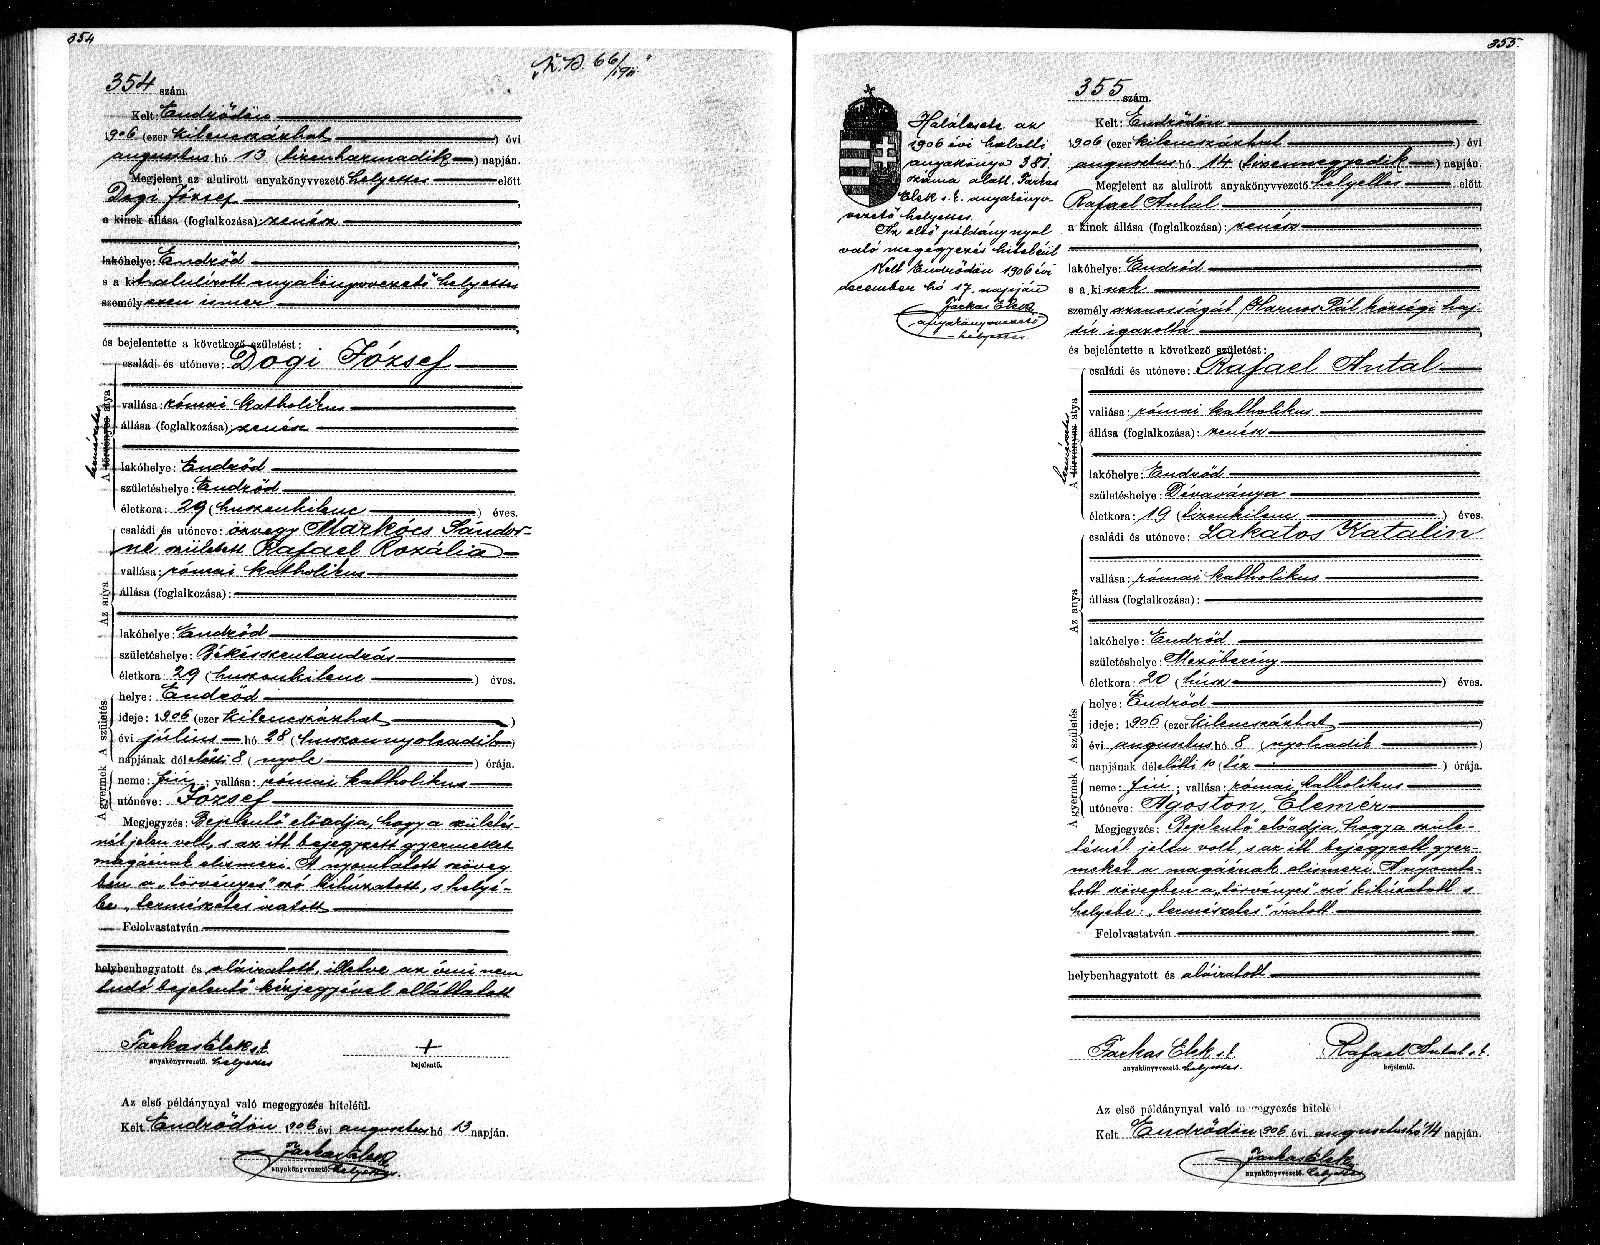 354
354 szám.
"K.D. 66/1911"
Kelt: Endrődön
1906 (ezer kilenczázhat) évi
augusztus hó 13 (tizenharmadik) napján.
Megjelent az alulírott anyakönyvvezető helyettes előtt
Dogi József,
a kinek állása (foglalkozása): zenész
lakóhelye: Endrőd
s a kit alulírott anyakönyvvezető helyettes
személyesen ismer
és bejelentette a következő születést:
A törvényes atya
természetes
családi és utóneve: Dogi József
vallása: római katholikus
állása (foglalkozása): zenész
lakóhelye: Endrőd
születéshelye: Endrőd
életkora: 29 (huszonkilenc) éves.
Az anya
családi és utóneve: özvegy Markócs Sándor-
né született Rafael Rozália
vallása: római katholikus
állása (foglalkozása):
lakóhelye: Endrőd
születéshelye: Békésszentandrás
életkora: 29 (huszonkilenc) éves.
A születés
helye: Endrőd
ideje: 1906 (ezer kilenczázhat)
évi július hó 28 (huszonnyolcadik)
napjának délelőtti 8 (nyolc) órája.
A gyermek
neme: fiú; vallása: római katholikus
utóneve: József
Megjegyzés: Bejelentő előadja, hogy a születés-
nél jelen volt, s az itt bejegyzett gyermeket
magáénak elismeri. A nyomtatott szöveg
ben a „törvényes" szó kihúzatott, s helyé-
be „természetes" iratott
Felolvastatván
helybenhagyatott és aláíratott, illetve az írni nem
tudó bejelentő kézjegyével elláttatott
Farkas Elek s.k. +
anyakönyvvezető. helyettes bejelentő.
Az első példánynyal való megegyezés hiteléül.
Kelt Endrődön 1906 évi augusztus hó 13 napján.
Farkas Elek
anyakönyvvezető. helyettes
355.
Halálesete az
1906 évi halotti
anyakönyv 381
száma alatt. Farkas
Elek s.k. anyaköny-
vezető helyettes.
Az első példánynyal
való megegyezés hiteléül
Kelt Endrődön 1906 évi
december hó 17. napján
Farkas Elek
anyakönyvvezető
helyettes
355 szám.
Kelt: Endrődön
1906 (ezer kilenczázhat) évi
augusztus hó 14 (tizennegyedik) napján.
Megjelent az alulírott anyakönyvvezető helyettes előtt
Rafael Antal,
a kinek állása (foglalkozása): zenész
lakóhelye: Endrőd
s a kinek
személyazonosságát Harnos Pál községi haj-
dú igazolta
és bejelentette a következő születést:
A törvényes atya
természetes
családi és utóneve: Rafael Antal
vallása: római katholikus
állása (foglalkozása): zenész
lakóhelye: Endrőd
születéshelye: Dévaványa
életkora: 19 (tizenkilenc) éves.
Az anya
családi és utóneve: Lakatos Katalin
vallása: római katholikus
állása (foglalkozása):
lakóhelye: Endrőd
születéshelye: Mezőberény
életkora: 20 (húsz) éves.
A születés
helye: Endrőd
ideje: 1906 (ezer kilenczázhat)
évi augusztus hó 8 (nyolcadik)
napjának délelőtti 10 (tíz) órája.
A gyermek
neme: fiú; vallása: római katholikus
utóneve: Ágoston, Elemér
Megjegyzés: Bejelentő előadja, hogy a szüle-
tésnél jelen volt, s az itt bejegyzett gyer-
meket a magáénak elismeri. A nyomta-
tott szövegben a „törvényes" szó kihúzatott s
helyébe: „természetes" iratott
Felolvastatván
helybenhagyatott és aláíratott
Farkas Elek s.k. Rafael Antal s.k.
anyakönyvvezető. helyettes. bejelentő.
Az első példánynyal való megegyezés hitelé
Kelt Endrődön 1906 évi augusztus hó 14 napján.
Farkas Elek
anyakönyvvezető. helyettes